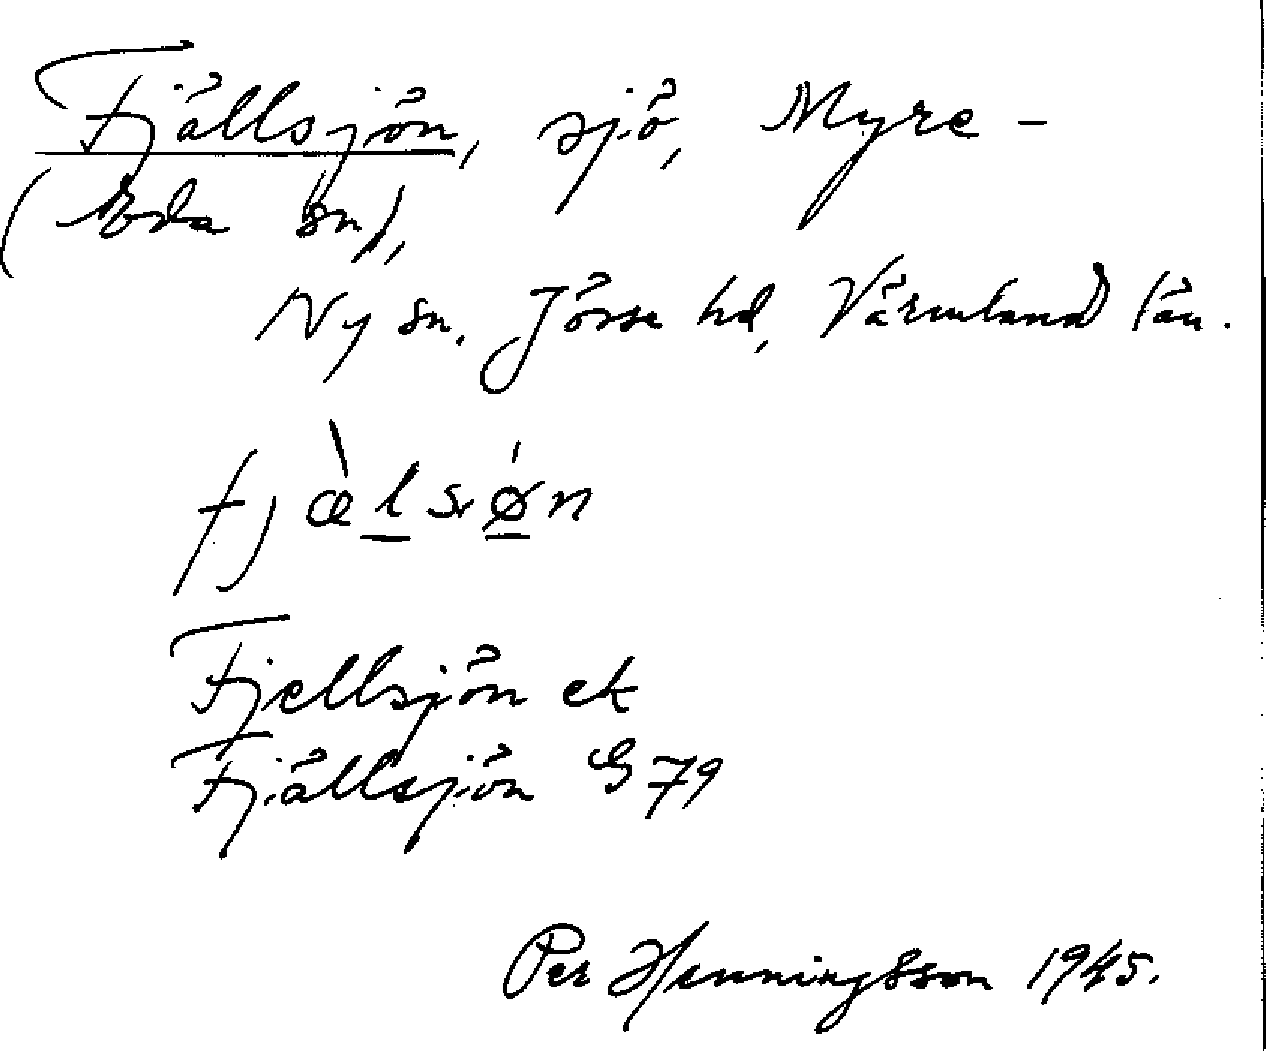 Fjällsjön, sjö, Myre -
(Eda sn),
Ny sn, Jösse hd, Värmland län.
fjæ̀lsǿn
Fjellsjön ek
Fjällsjön G 79
Per Henningsson 1945.